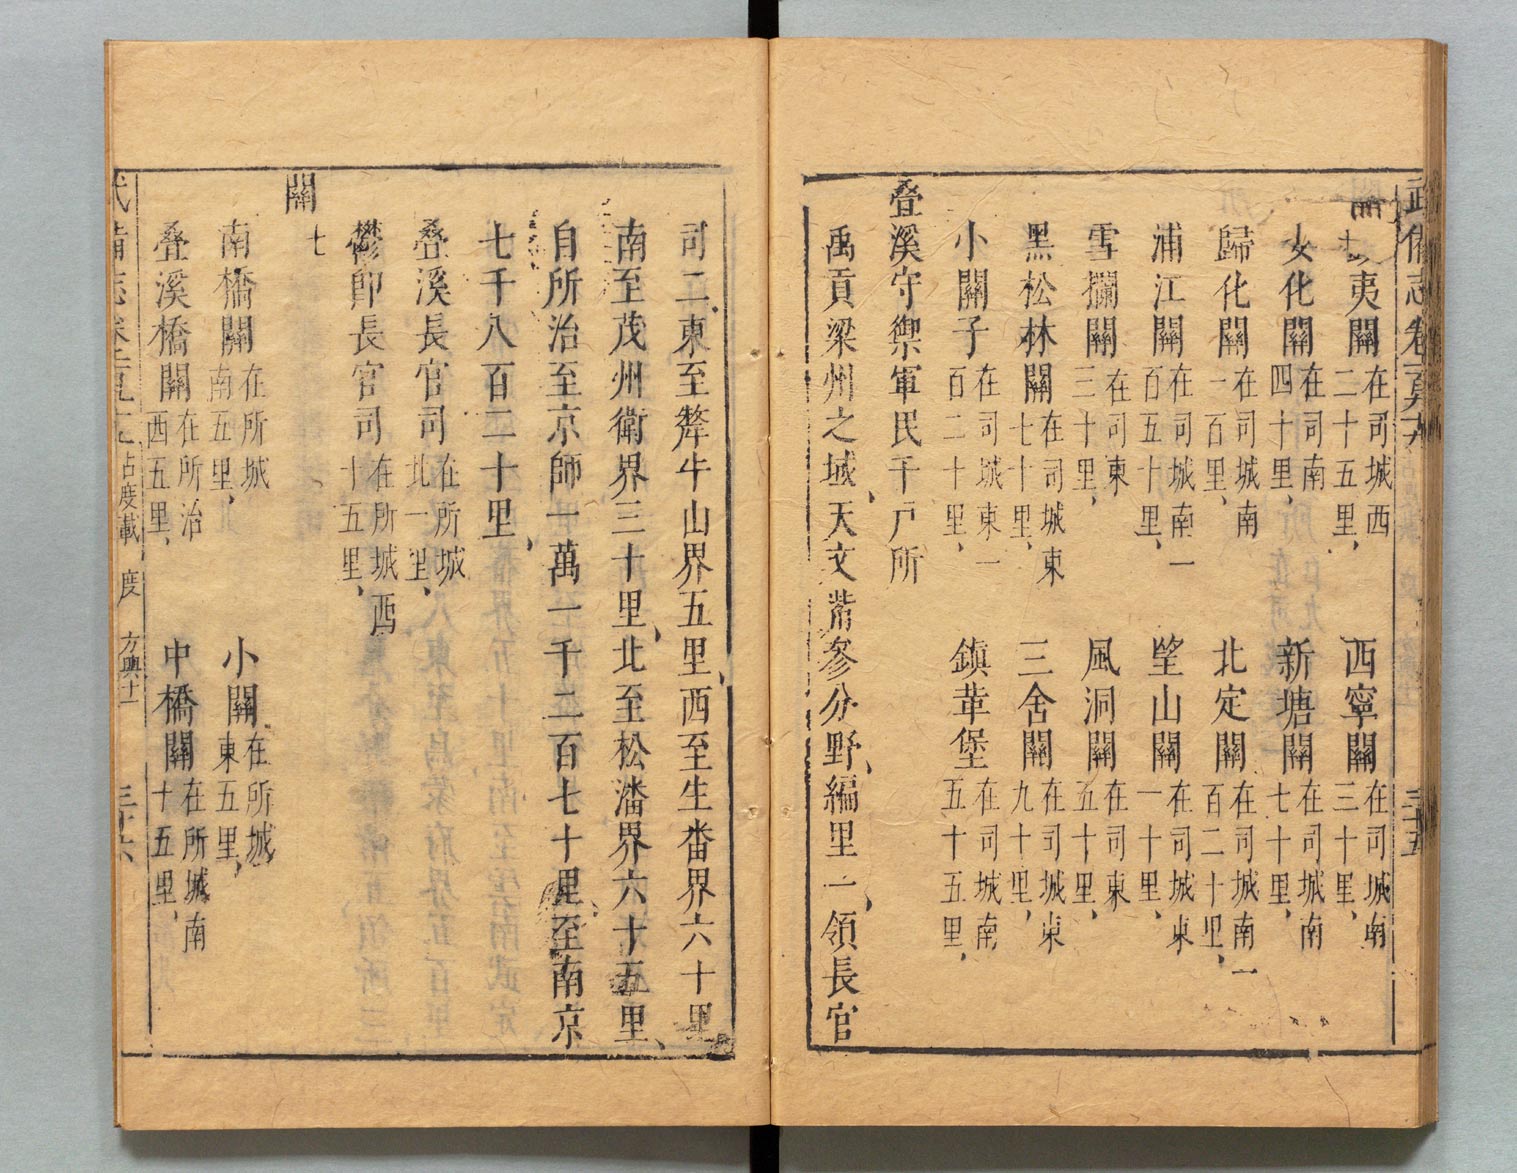 夷關在司城西二十五里、　西寧關在司城南三十里、
女化關在司南四十里、　新塘關在司城南七十里、
歸化關在司城南一百里、　北定關在司城南一百二十里、
浦江關在司城南一百五十里、　望山關在司城東一十里、
雪攔關在司東三十里、　風洞關在司東五十里、
黑松林關在司城東七十里、　三舍關在司城東九十里、
小關子在司城東一百二十里、　鎮革堡在司城南五十五里、
叠溪守禦軍民千戶所
禹貢梁州之域、天文觜參分野、編里一、領長官
司二、東至犛牛山界五里、西至生番界六十里
南至茂州衛界三十里、北至松潘界六十五里、
自所治至京師一萬一千二百七十里、至南京
七千八百二十里、
叠溪長官司在所城北一里、
鬱即長官司在所城西十五里、
關　七
南橋關在所城南五里、　小關在所城東五里、
叠溪橋關在所治西五里、　中橋關在所城南十五里、
武備志卷　占度載　度　方輿十一　三十六